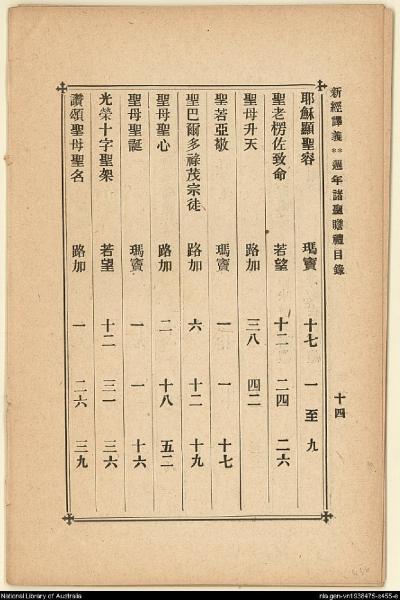 新經譯義**週年諸聖瞻禮目錄 十四
耶穌顯聖容 瑪竇 十七 一 至 九
聖老楞佐致命 若望 十二 二四 二六
聖母升天 路加 三八 四二
聖若亞敬 瑪竇 一 一 十七
聖巴爾多祿茂宗徒 路加 六 十二 十九
聖母聖心 路加 二 十八 五二
聖母聖誕 瑪竇 一 一 十六
光榮十字聖架 若望 十二 三一 三六
讚頌聖母聖名 路加 一 二六 三九
National Library of Australia
nla.gen-vn1938475-s455-e